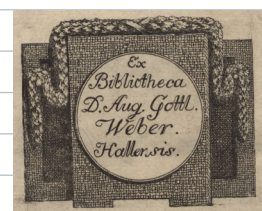 Ex
Bibliotheca
D. Aug. Gottl.
Weber.
Hallensis.